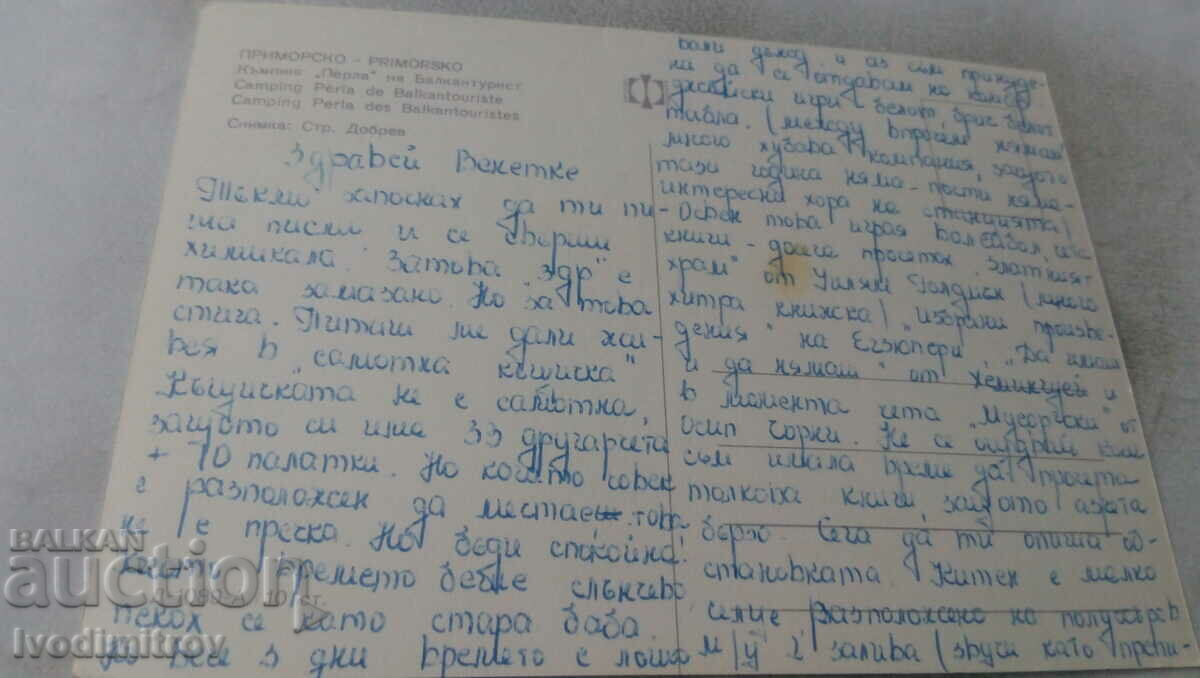 ПРИМОРСКО - PRIMORSKO
Къмпинг „Перла" на Балкантурист
Camping Perla de Balkantouriste
Camping Perla des Balkantouristes
Снимка: Стр. Добрев
Здравей Венетке
Тъкмо запоснах да ти пи-
ша писмо и се свърши
химикала. Затова „здр" е
така замазано. Но за това
стига. Питаш ме дали жи-
вея в „самотна къщичка"
Къщичката не е самотна,
защото си има 33 другарчета
+ 10 палатки. Но когато човек
е разположен да мечтае това
не е пречка. Но бъди спокойна!
Когато времето беше слънчево
пекох се като стара баба.
Но вече 3 дни времето е лошо
вали дъжд и аз съм принуде-
на да се отдавам на
игри белот, бридж белот
табла. (между впрочем нямам
много хубава компания, защото
тази година няма - почти няма -
интересни хора на станцията)
Освен това играя волейбол, чета
книги - досега прочетох „Златният
храм" от Уилям Голдинг (много
хитра книжка) „Избрани произве-
дения" на Екзюпери, „Да имаш
и да нямаш" от Хемингуей и
в момента чета „Мусоргски" от
Осип Чорни. Не се учудвай как
съм имала време да прочета
толкова книги, защото аз чета
бързо. Сега да ти опиша об-
становката. Китен е малко
селце разположено на полуостров
м/у 2 залива (звучи като препи-
BALKAN
auction
Ivodimitrov